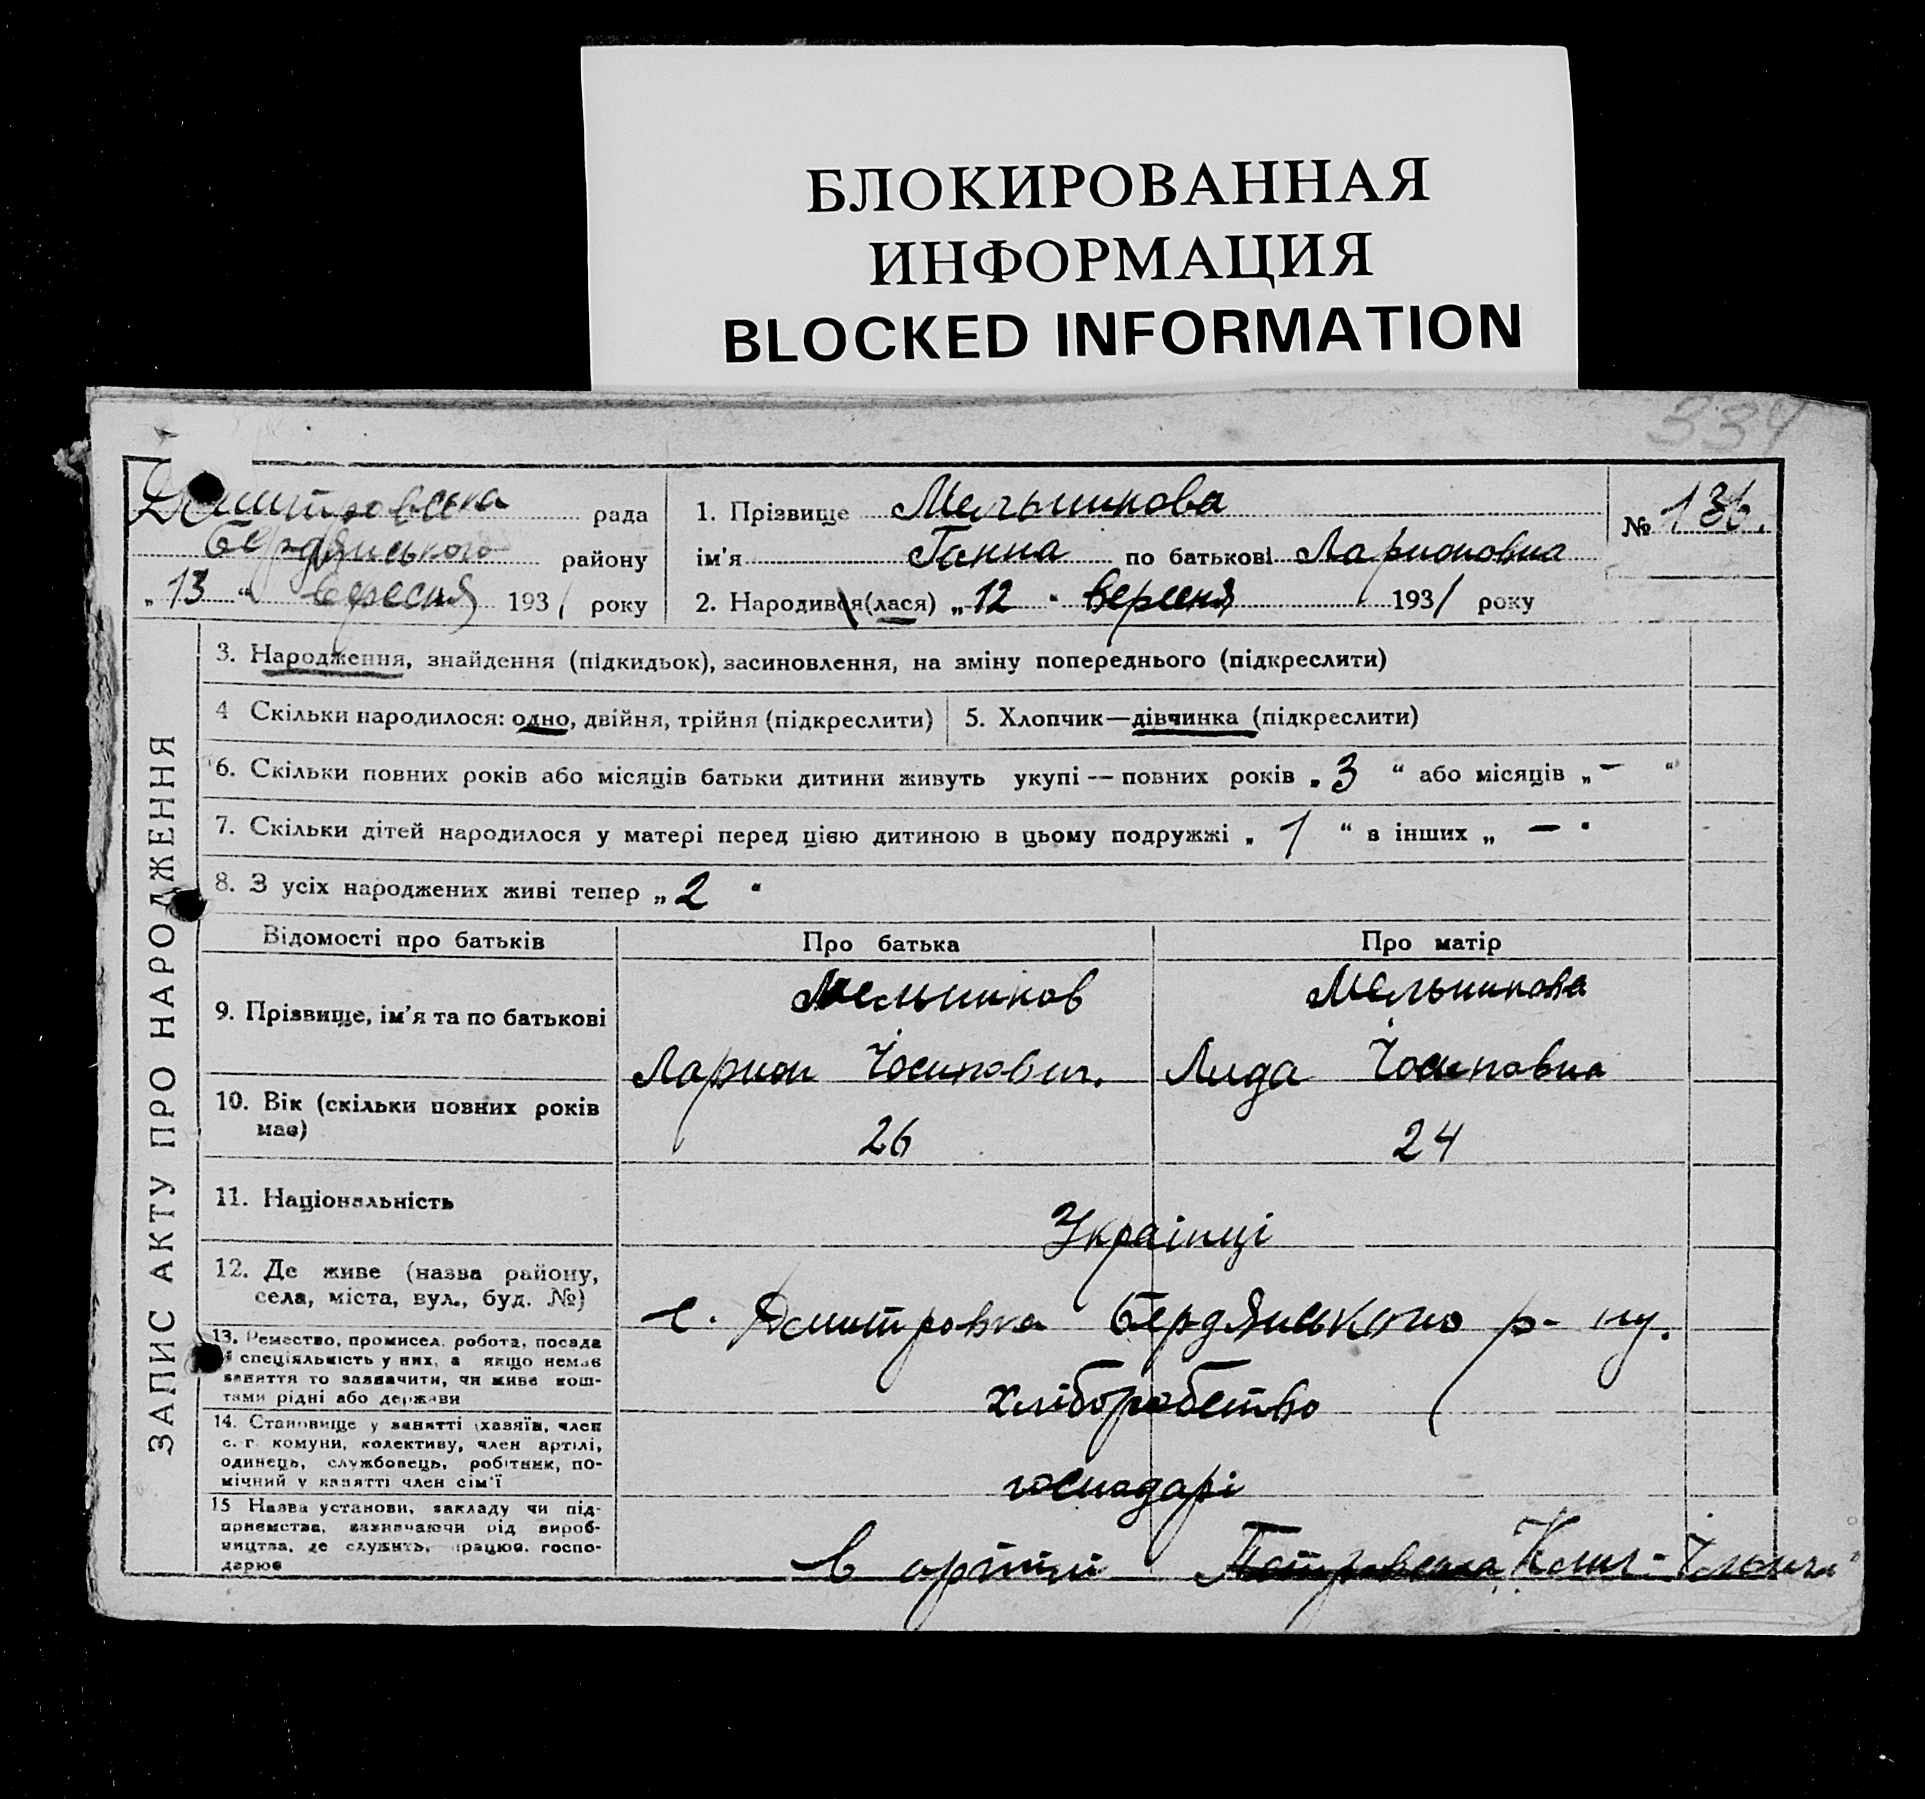 БЛОКИРОВАННАЯ
ИНФОРМАЦИЯ
BLOCKED INFORMATION
334
Дмитровска рада
Бердянського району
„13“ вересня 1931 року
1. Прізвище Мельникова
ім'я Ганна по батькові Ларионовна
2. Народився (лася) „12" вересня 1931 року
№ 136.
ЗАПИС АКТУ ПРО НАРОДЖЕННЯ
3. Народження, знайдення (підкидьок), засиновлення, на зміну попереднього (підкреслити)
4 Скільки народилося: одно, двійня, трійня (підкреслити)
5. Хлопчик—дівчинка (підкреслити)
6. Скільки повних років або місяців батьки дитини живуть укупі — повних років „3“ або місяців „—“
7. Скільки дітей народилося у матері перед цією дитиною в цьому подружжі „1“ в інших „—"
8. З усіх народжених живі тепер „2"
Відомості про батьків Про батька Про матір
9. Прізвище, ім'я та по батькові
Мельников
Ларион Йосипович.
Мельникова
Лида Йосиповна
10. Вік (скільки повних років
має)
26 24
11. Національність
Українці
12. Де живе (назва району,
села, міста, вул., буд. №)
с. Дмитровка Бердянського р-ну.
13. Ремество, промисел, робота, посада
й спеціяльність у них, а якщо немає
заняття то зазначити, чи живе кош-
тами рідні або держави
хліборобство
14. Становище у занятті (хазяїн, член
с.-г. комуни, колективу, член артілі,
одинець, службовець, робітник, по-
мічний у занятті член сім'ї
господарі
15 Назва установи, закладу чи під-
приємства, зазначаючи рід вироб-
ництва, де служить, працює, госпо-
дарює
в артілі